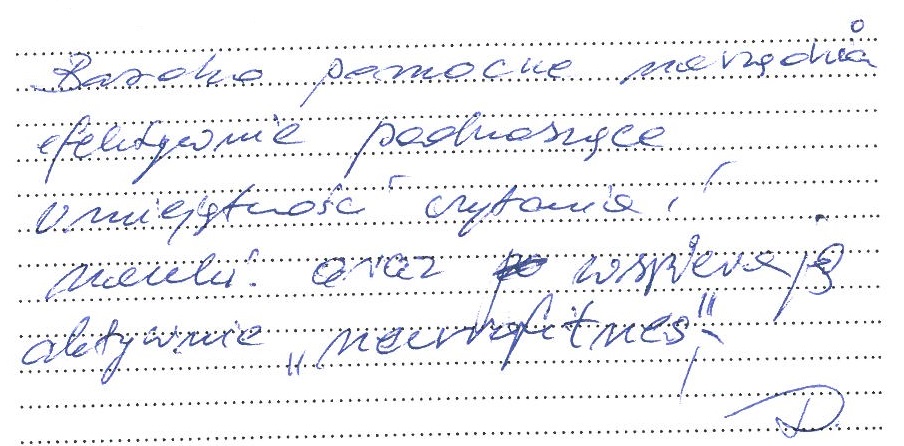 Bardzo pomocne narzędzia
efektywnie podnoszące
umiejętność czytania i
nauki oraz wspierają
aktywnie „neurofitnes”